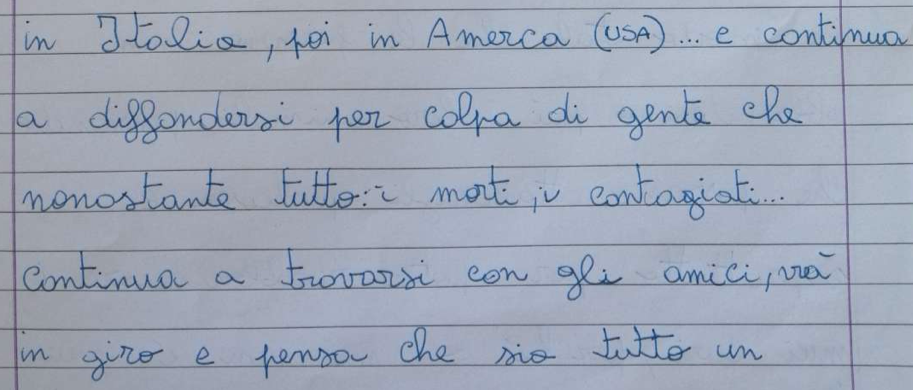 in Italia, poi in Amerca (USA)... e continua
a diffondersi per colpa di gente che
nonostante tutto: i morti, i contagiati...
continua a trovarsi con gli amici, và
in giro e pensa che sia tutto un